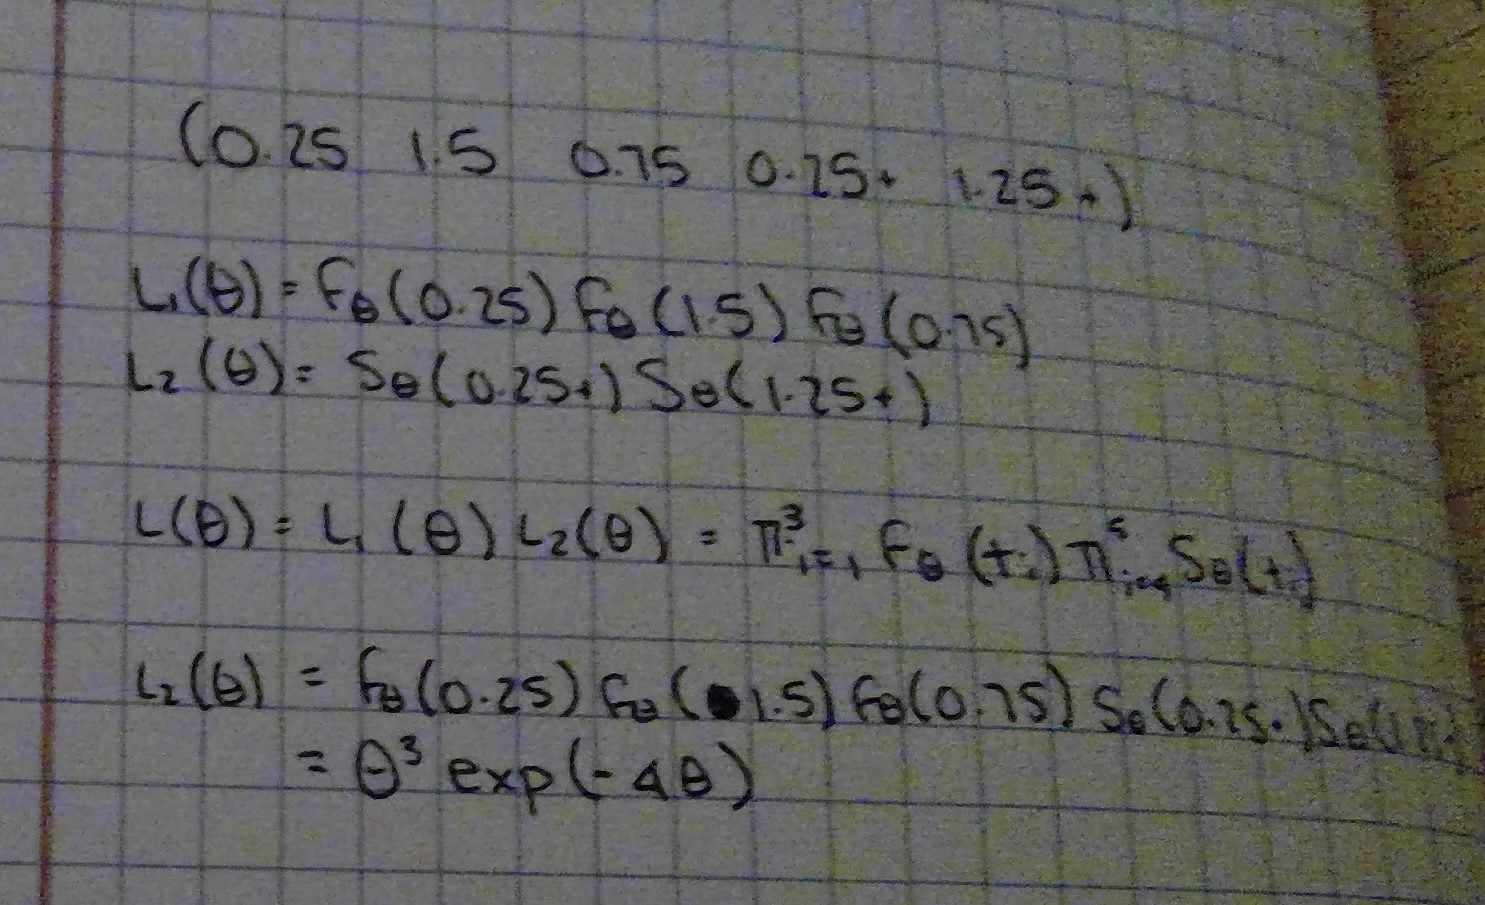 (0.25 1.5 0.75 0.25+ 1.25+)
L₁(θ) = fθ(0.25) fθ(1.5) fθ(0.75)
L₂(θ) = Sθ(0.25+) Sθ(1.25+)
L(θ) = L₁(θ) L₂(θ) = π³ᵢ₌₁ fθ(tᵢ) π⁵ᵢ₌₄ Sθ(tᵢ)
L₂(θ) = fθ(0.25) fθ(1.5) fθ(0.75) Sθ(0.25+) Sθ(
= θ³ exp(-4θ)